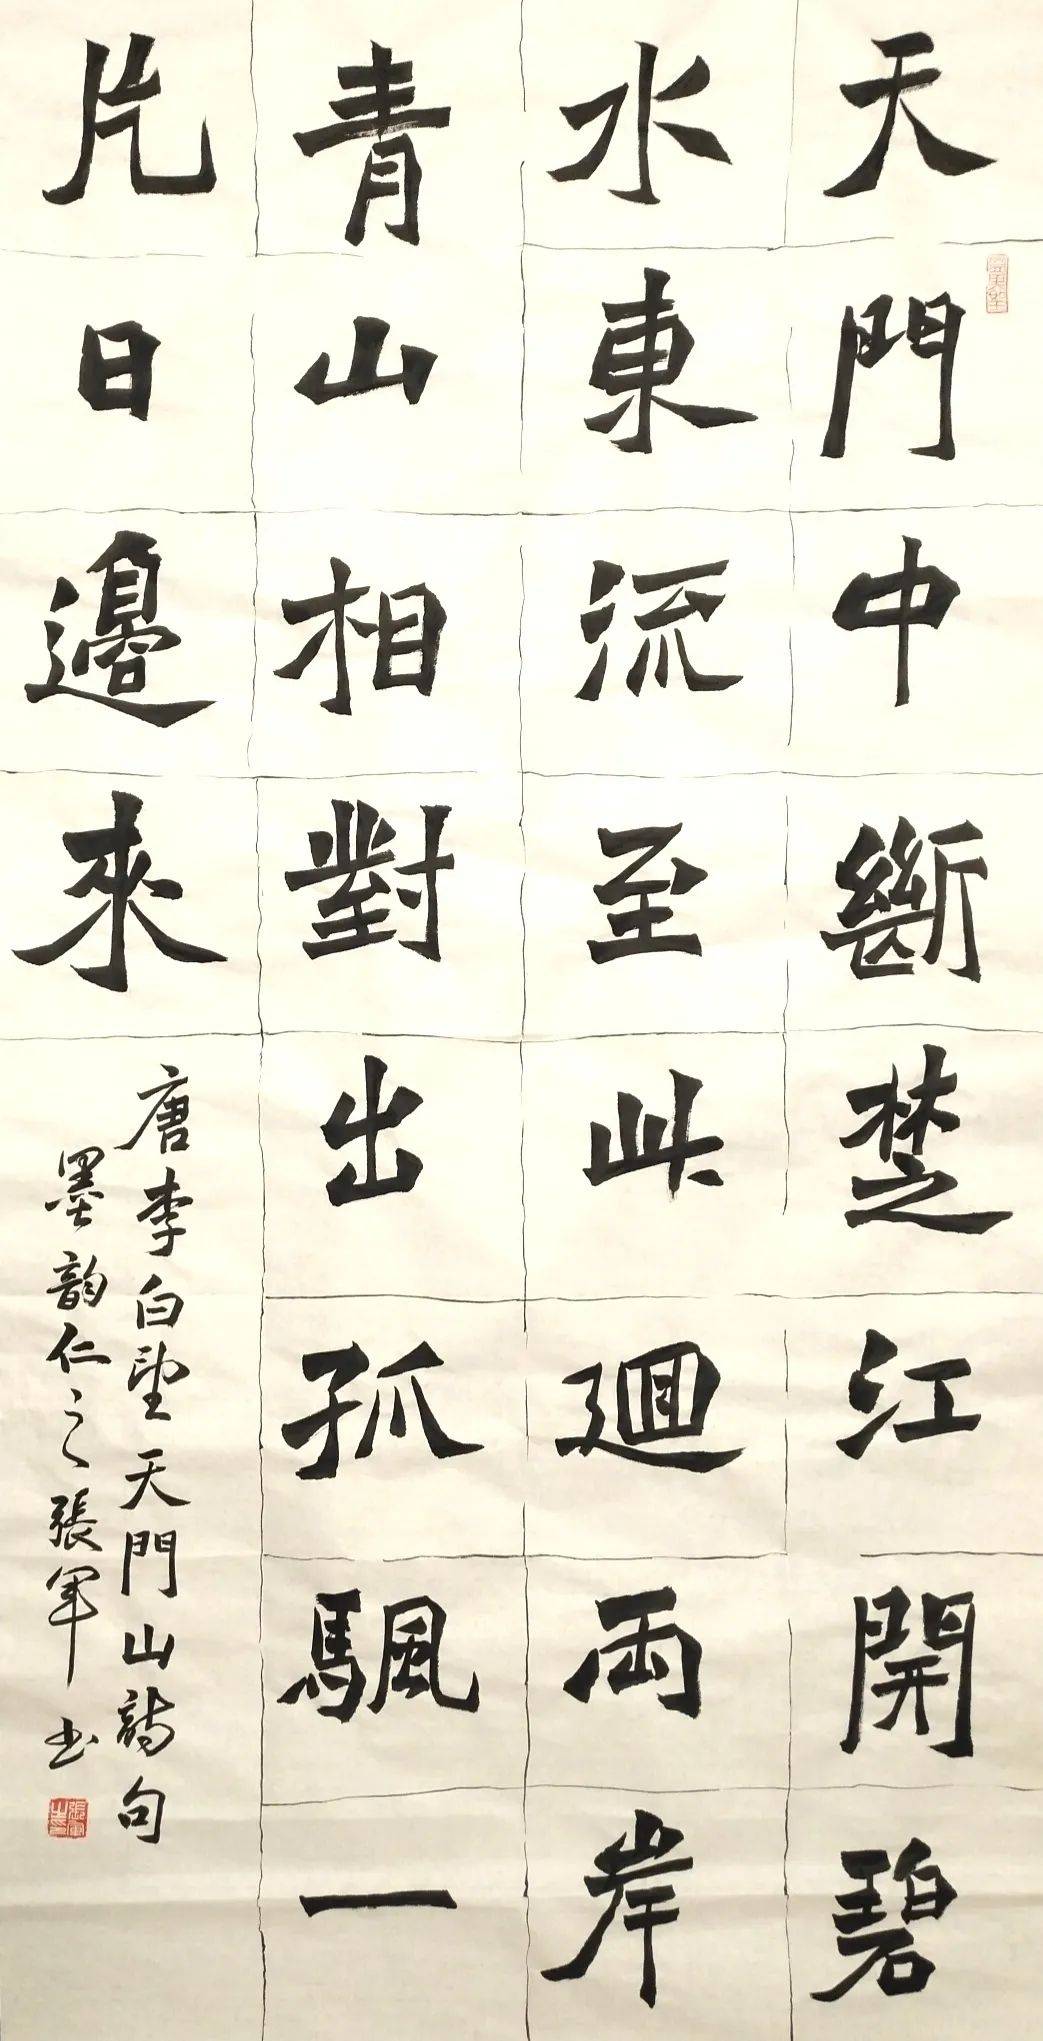 天門中斷楚江開碧
水東流至此迴兩岸
青山相對出孤颿一
片日邊來
唐李白望天門山詩句
墨韵仁之張军书
張軍之印